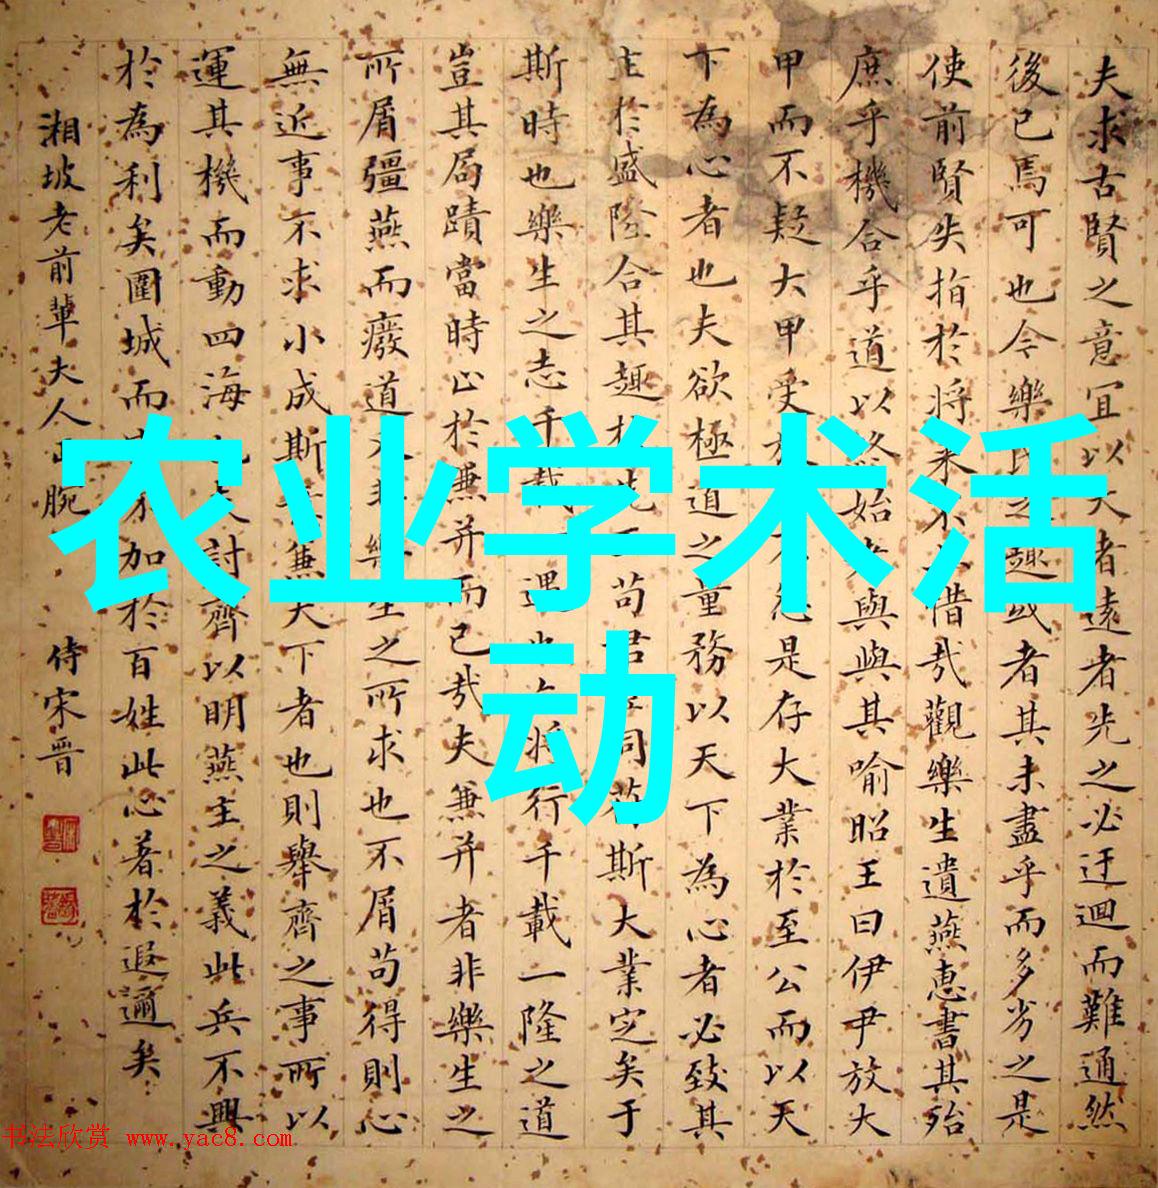 夫求古賢之意宜以大者遠者先之必迂迴而難通然
後已焉可也今樂氏之趣或者其未盡乎而多劣之是
使前賢失指於將來不惜哉觀樂生遺燕惠書其殆
庶乎機合乎道以終始者與與其喻昭王曰伊尹放大
甲而不疑大甲受放而不怨是存大業於至公而以天
下為心者也夫欲極道之量務以天下為心者必致其
主於盛隆合其趣於先王苟君臣同符斯大業定矣于
斯時也樂生之志千載一遇也亦將行千載一隆之道
豈其局蹟當時止於兼并而已哉夫兼并者非樂生之
所屑彊燕而廢道又非樂生之所求也不屑苟得則心
無近事不求小成斯意兼天下者也則舉齊之事所以
運其機而動四海也夫討齊以明燕主之義此兵不興
於為利矣圍城而害不加於百姓此心著於遐邇矣
湘坡老前輩夫人正腕
侍宋晋
农业学术活
动
书法欣赏 www.yac8.com